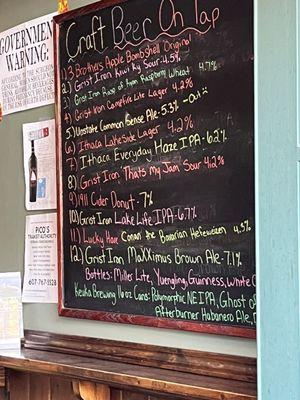 GOVERNMENT
WARNING:
Craft Beer On Tap
1) 3 Brothers Apple Bombshell Original
2) Grist Iron Kiwi Ky Sour - 4.5%
3) Grist Iron Rasp of Ryan Raspberry Wheat 4.7%
4) Grist Iron Camefive Lite Lager 4.2%
5) Upstate Common Sense Ale - 5.3% - Out
6) Ithaca Lakeside Lager 4.2%
7) Ithaca Everyday Haze IPA - 6.2%
8) Grist Iron Thats My Jam Sour 4.2%
9) 1911 Cider Donut - 7%
10) Grist Iron Lake Lite IPA - 6.7%
11) Lucky Hare Conan the Bavarian Hefeweizen 4.5%
12) Grist Iron MaXXimus Brown Ale - 7.1%
Bottles: Miller Lite, Yuengling, Guinness, White C
Keuka Brewing 16oz Cans: Polymorphic NEIPA, Ghost of
Afterburner Habanero Ale,
PICO'S
TRANSIT
AUTHORITY
607-767-1179